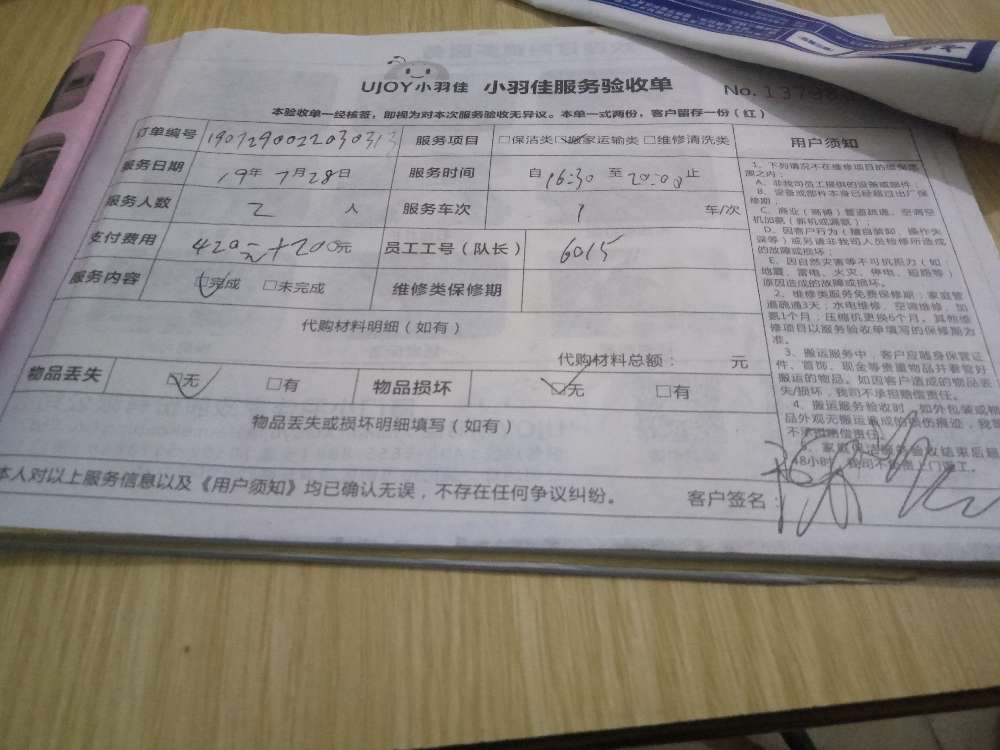 UJOY小羽佳 小羽佳服务验收单
No.13798
本验收单一经核签，即视为对本次服务验收无异议。本单一式两份，客户留存一份（红）
订单编号 服务项目 □保洁类 ☑搬家运输类 □维修清洗类
服务日期 19年7月28日 服务时间 自16:30至20:00止
服务人数 2人 服务车次 1 车/次
支付费用 420元+200元 员工工号（队长） 6015
服务内容 ☑完成 □未完成 维修类保修期
代购材料明细（如有）
代购材料总额： 元
物品丢失 ☑无 □有 物品损坏 ☑无 □有
物品丢失或损坏明细填写（如有）
本人对以上服务信息以及《用户须知》均已确认无误，不存在任何争议纠纷。 客户签名：
用户须知
1、下列情况不在维修项目的质保范
围之内：
A、非我司员工提供的设备或部件；
B、设备或部件本身已经超过出厂保
修期；
C、商业（商铺）管道疏通、空调空
机加氨（新机或漏氨）；
D、因客户行为（擅自装卸、操作失
误等）或另请非我司人员检修所造成
的故障或损坏；
E、因自然灾害等不可抗拒力（如：
地震、雷电、火灾、停电、短路等）
原因造成的故障或损坏。
2、维修类服务免费保修期：家庭管
道疏通3天；水电维修、空调维修、加
氨1个月；压缩机更换6个月。其他维
修项目以服务验收单填写的保修期为
准。
3、搬运服务中，客户应随身保管证
件、首饰、现金等贵重物品并看管好
搬运的物品。如因客户造成的物品丢
失/损坏，我司不承担赔偿责任。
4、搬运服务验收时，如外包装或物
品外观无搬运造成的损伤痕迹，我司
不承担赔偿责任。
验收结束后超
48小时，我司不负责上门返工。